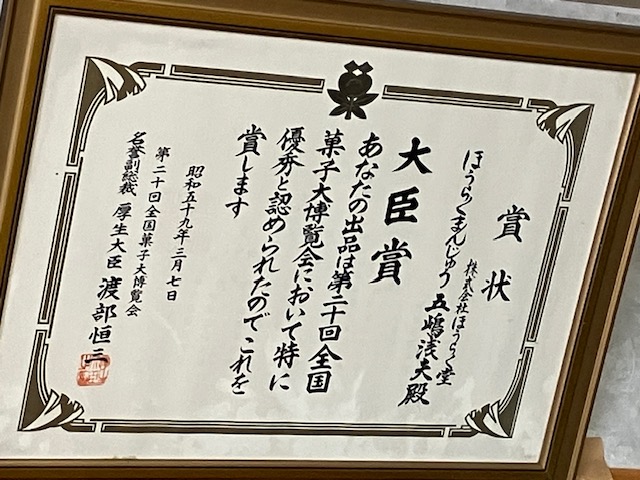 賞状
ほうらくまんじゅう
株式会社ほうらく堂
五嶋浅夫殿
大臣賞
あなたの出品は第二十回全国
菓子大博覧会において特に
優秀と認められたのでこれを
賞します
昭和五十九年三月七日
第二十回全国菓子大博覧会
名誉副総裁 厚生大臣 渡部恒三